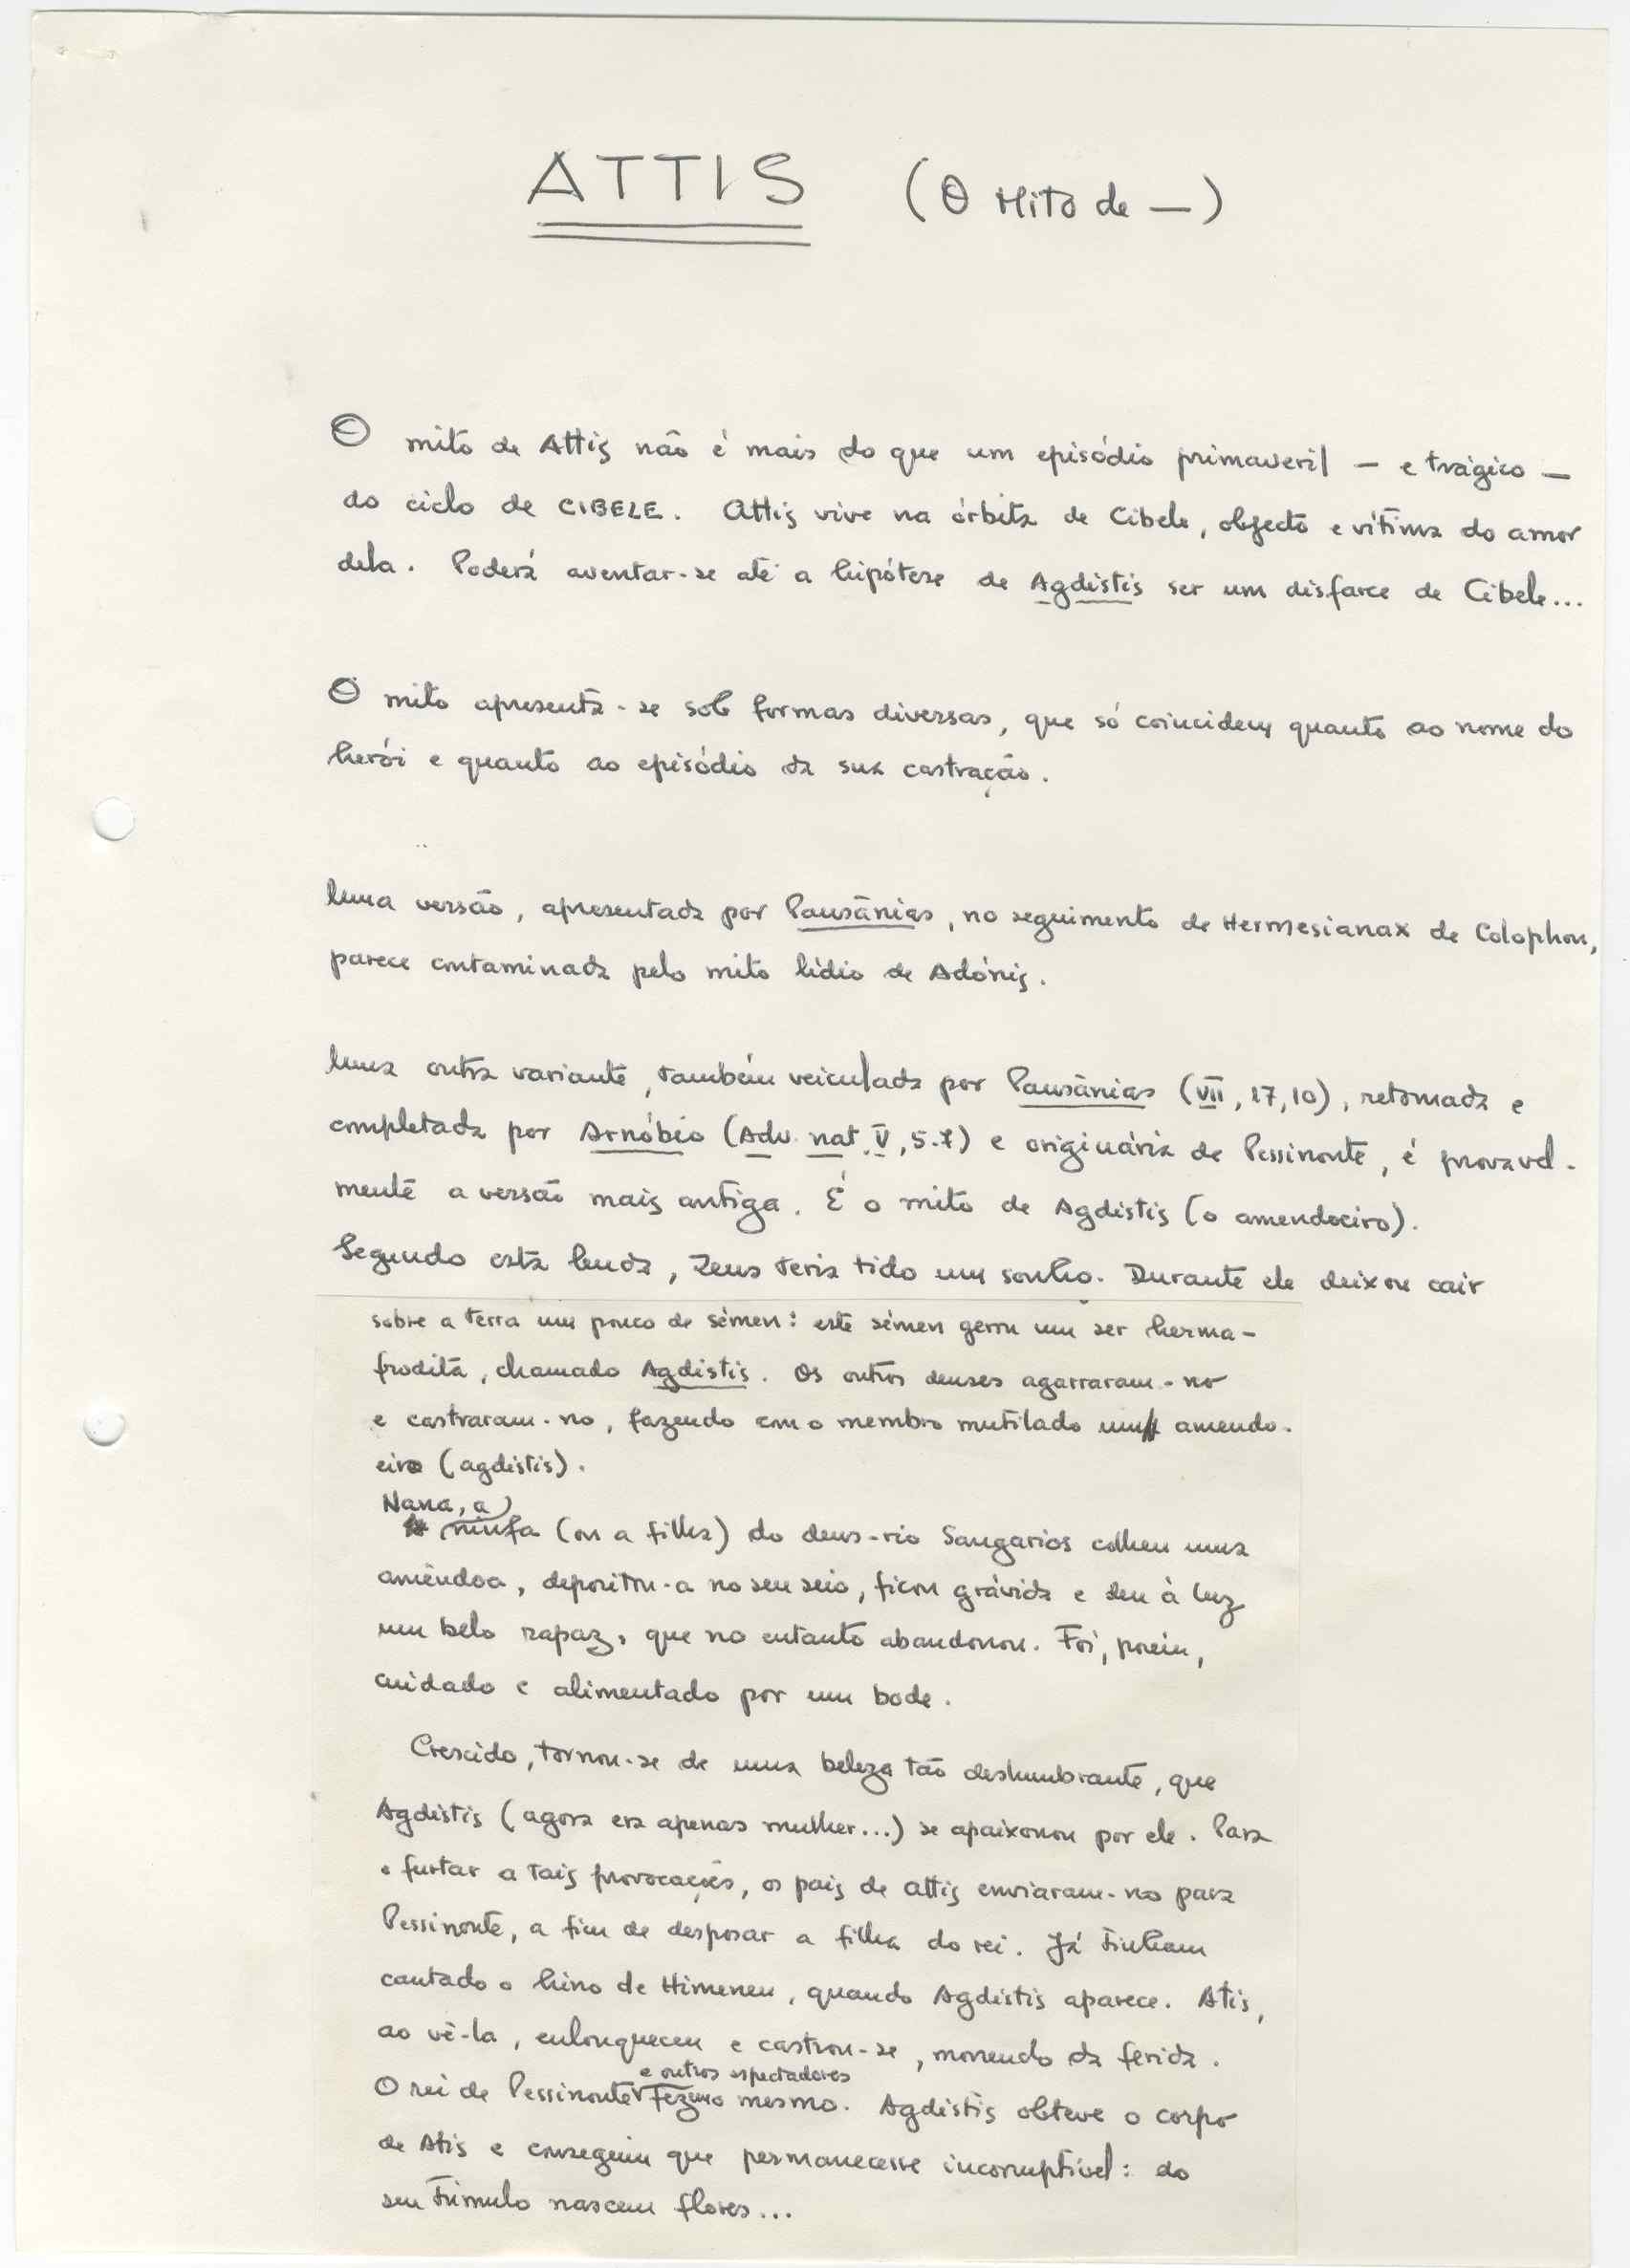 ATTIS (O Mito de —)
O mito de Attis não é mais do que um episódio primaveril — e trágico —
do ciclo de CIBELE. Attis vive na órbita de Cibele, objecto e vítima do amor
dela. Poderá aventar-se até a hipótese de Agdistis ser um disfarce de Cibele...
O mito apresenta-se sob formas diversas, que só coincidem quanto ao nome do
herói e quanto ao episódio da sua castração.
Uma versão, apresentada por Pausânias, no seguimento de Hermesianax de Colophon,
parece contaminada pelo mito lídio de Adónis.
Uma outra variante, também veiculada por Pausânias (VII, 17, 10), retomada e
completada por Arnóbio (Adv. nat. V, 5-7) e originária de Pessinonte, é provavel-
mente a versão mais antiga. É o mito de Agdistis (o amendoeiro).
Segundo esta lenda, Zeus teria tido um sonho. Durante ele deixou cair
sobre a terra um pouco de sémen: este sémen gerou um ser herma-
frodita, chamado Agdistis. Os outros deuses agarraram-no
e castraram-no, fazendo com o membro mutilado um amendo-
eiro (agdistis).
Nana, a
ninfa (ou a filha) do deus-rio Sangarios colheu uma
amêndoa, depositou-a no seu seio, ficou grávida e deu à luz
um belo rapaz, que no entanto abandonou. Foi, porém,
cuidado e alimentado por um bode.
Crescido, tornou-se de uma beleza tão deslumbrante, que
Agdistis (agora era apenas mulher...) se apaixonou por ele. Para
o furtar a tais provocações, os pais de Attis enviaram-no para
Pessinonte, a fim de desposar a filha do rei. Já tinham
cantado o hino de Himeneu, quando Agdistis aparece. Atis,
ao vê-la, enlouqueceu e castrou-se, morrendo da ferida.
e outros espectadores
O rei de Pessinonte fez o mesmo. Agdistis obteve o corpo
de Atis e conseguiu que permanecesse incorruptível: do
seu túmulo nascem flores...